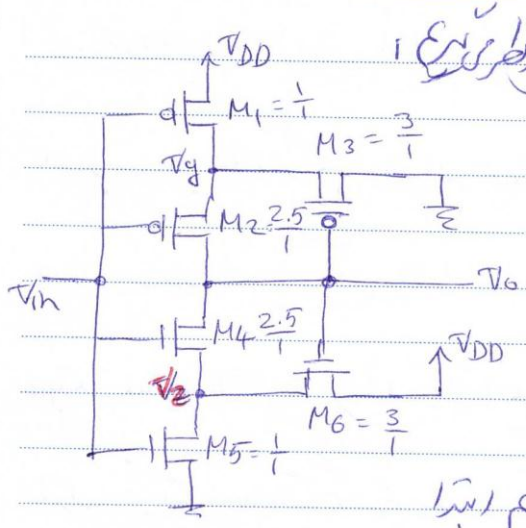 VDD
M1 = 1/1
M3 = 3/1
Vy
M2 = 2.5/1
Vin
Vo
M4 2.5/1
VDD
Vz
M6 = 3/1
M5 = 1/1